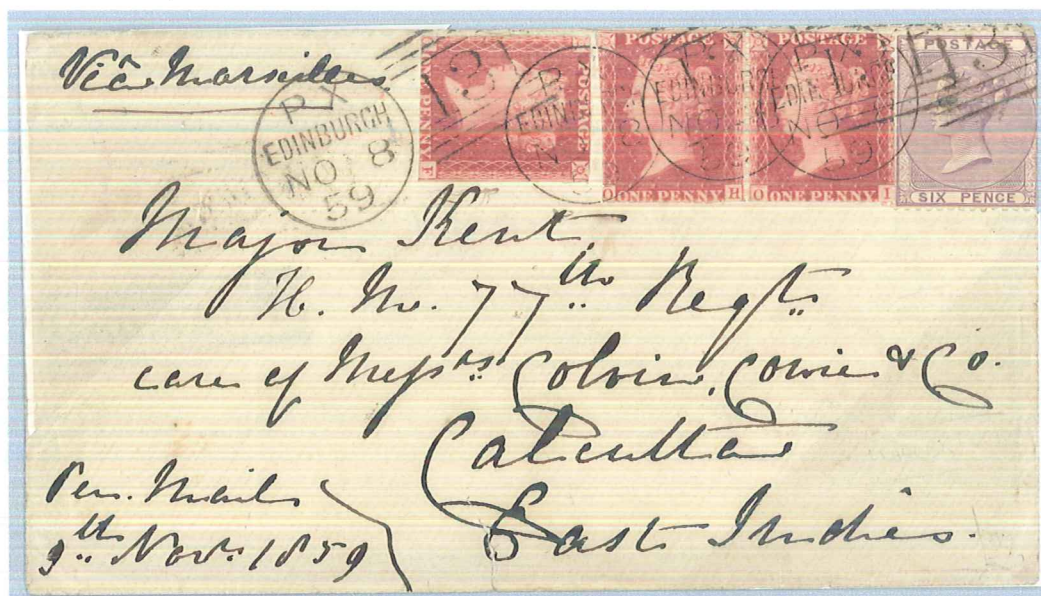 Viâ Marseilles
PX
EDINBURGH
NO 8
59
131
POSTAGE
ONE PENNY
O H
POSTAGE
ONE PENNY
O I
POSTAGE
SIX PENCE
Major Kent
H. M. 77th Regt.
care of Messrs. Colvin, Cowie & Co.
Calcutta
East Indies.
Per. Mail
9th Novr. 1859